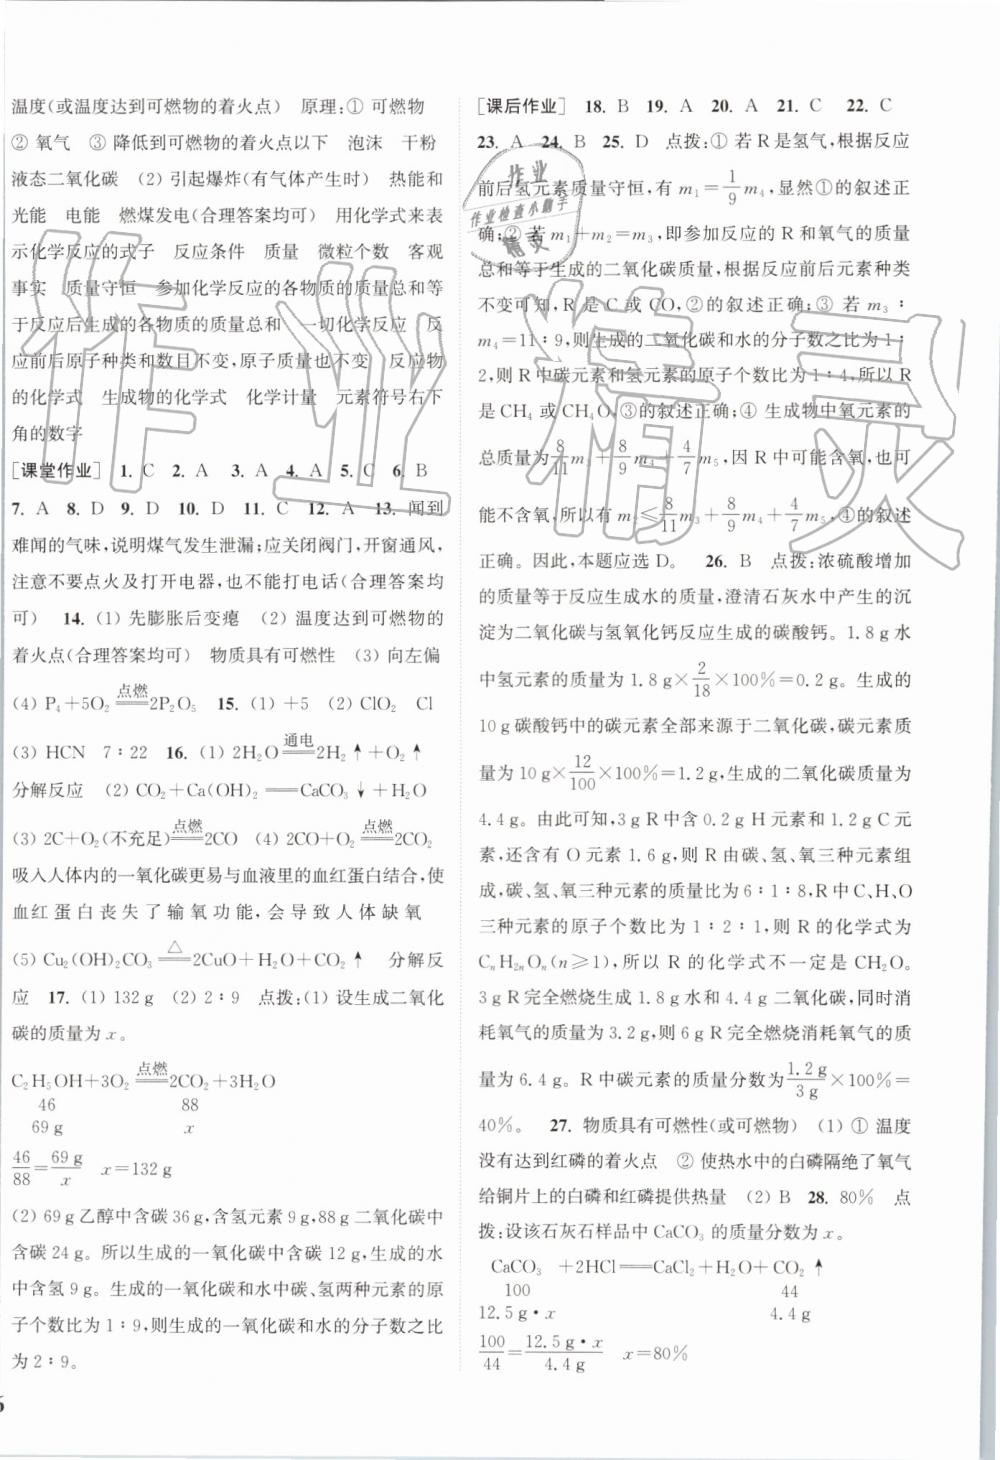 温度(或温度达到可燃物的着火点)　原理:① 可燃物
② 氧气　③ 降低到可燃物的着火点以下　泡沫　干粉
液态二氧化碳　(2) 引起爆炸(有气体产生时)　热能和
光能　电能　燃煤发电(合理答案均可)　用化学式来表
示化学反应的式子　反应条件　质量　微粒个数　客观
事实　质量守恒　参加化学反应的各物质的质量总和等
于反应后生成的各物质的质量总和　一切化学反应　反
应前后原子种类和数目不变,原子质量也不变　反应物
的化学式　生成物的化学式　化学计量　元素符号右下
角的数字
[课堂作业]　1. C　2. A　3. A　4. A　5. C　6. B
7. A　8. D　9. D　10. D　11. C　12. A　13. 闻到
难闻的气味,说明煤气发生泄漏;应关闭阀门,开窗通风,
注意不要点火及打开电器,也不能打电话(合理答案均
可)　14. (1) 先膨胀后变瘪　(2) 温度达到可燃物的
着火点(合理答案均可)　物质具有可燃性　(3) 向左偏
(4) P₄+5O₂ ══点燃══ 2P₂O₅　15. (1) +5　(2) ClO₂　Cl
(3) HCN　7∶22　16. (1) 2H₂O ══通电══ 2H₂↑+O₂↑
分解反应　(2) CO₂+Ca(OH)₂ ══ CaCO₃↓+H₂O
(3) 2C+O₂(不充足) ══点燃══ 2CO　(4) 2CO+O₂ ══点燃══ 2CO₂
吸入人体内的一氧化碳更易与血液里的血红蛋白结合,使
血红蛋白丧失了输氧功能,会导致人体缺氧
(5) Cu₂(OH)₂CO₃ ══△══ 2CuO+H₂O+CO₂↑　分解反
应　17. (1) 132 g　(2) 2∶9　点拨:(1) 设生成二氧化
碳的质量为 x。
C₂H₅OH+3O₂ ══点燃══ 2CO₂+3H₂O
46　88
69 g　x
46/88=69 g/x　x=132 g
(2) 69 g 乙醇中含碳 36 g,含氢元素 9 g,88 g 二氧化碳中
含碳 24 g。所以生成的一氧化碳中含碳 12 g,生成的水
中含氢 9 g。生成的一氧化碳和水中碳、氢两种元素的原
子个数比为 1∶9,则生成的一氧化碳和水的分子数之比
为 2∶9。
6
[课后作业]　18. B　19. A　20. A　21. C　22. C
23. A　24. B　25. D　点拨:① 若 R 是氢气,根据反应
前后氢元素质量守恒,有 m₁=1/9 m₄,显然①的叙述正
确;② 若 m₁+m₂=m₃,即参加反应的 R 和氧气的质量
总和等于生成的二氧化碳质量,根据反应前后元素种类
不变可知,R 是 C 或 CO,②的叙述正确;③ 若 m₃∶
m₄=11∶9,则生成的二氧化碳和水的分子数之比为 1∶
2,则 R 中碳元素和氢元素的原子个数比为 1∶4,所以 R
是 CH₄ 或 CH₄O,③的叙述正确;④ 生成物中氧元素的
总质量为 8/11 m₃+8/9 m₄+4/7 m₅,因 R 中可能含氧,也可
能不含氧,所以有 m₂≤8/11 m₃+8/9 m₄+4/7 m₅,④的叙述
正确。因此,本题应选 D。　26. B　点拨:浓硫酸增加
的质量等于反应生成水的质量,澄清石灰水中产生的沉
淀为二氧化碳与氢氧化钙反应生成的碳酸钙。1.8 g 水
中氢元素的质量为 1.8 g×2/18×100%=0.2 g。生成的
10 g 碳酸钙中的碳元素全部来源于二氧化碳,碳元素质
量为 10 g×12/100×100%=1.2 g,生成的二氧化碳质量为
4.4 g。由此可知,3 g R 中含 0.2 g H 元素和 1.2 g C 元
素,还含有 O 元素 1.6 g,则 R 由碳、氢、氧三种元素组
成,碳、氢、氧三种元素的质量比为 6∶1∶8,R 中 C、H、O
三种元素的原子个数比为 1∶2∶1,则 R 的化学式为
CₙH₂ₙOₙ(n≥1),所以 R 的化学式不一定是 CH₂O。
3 g R 完全燃烧生成 1.8 g 水和 4.4 g 二氧化碳,同时消
耗氧气的质量为 3.2 g,则 6 g R 完全燃烧消耗氧气的质
量为 6.4 g。R 中碳元素的质量分数为 1.2 g/3 g×100%=
40%。　27. 物质具有可燃性(或可燃物)　(1) ① 温度
没有达到红磷的着火点　② 使热水中的白磷隔绝了氧气
给铜片上的白磷和红磷提供热量　(2) B　28. 80%　点
拨:设该石灰石样品中 CaCO₃ 的质量分数为 x。
CaCO₃ +2HCl ══ CaCl₂+H₂O+ CO₂↑
100　44
12.5 g·x　4.4 g
100/44=12.5 g·x/4.4 g　x=80%
作业
作业检查小助手
精灵
作业精灵